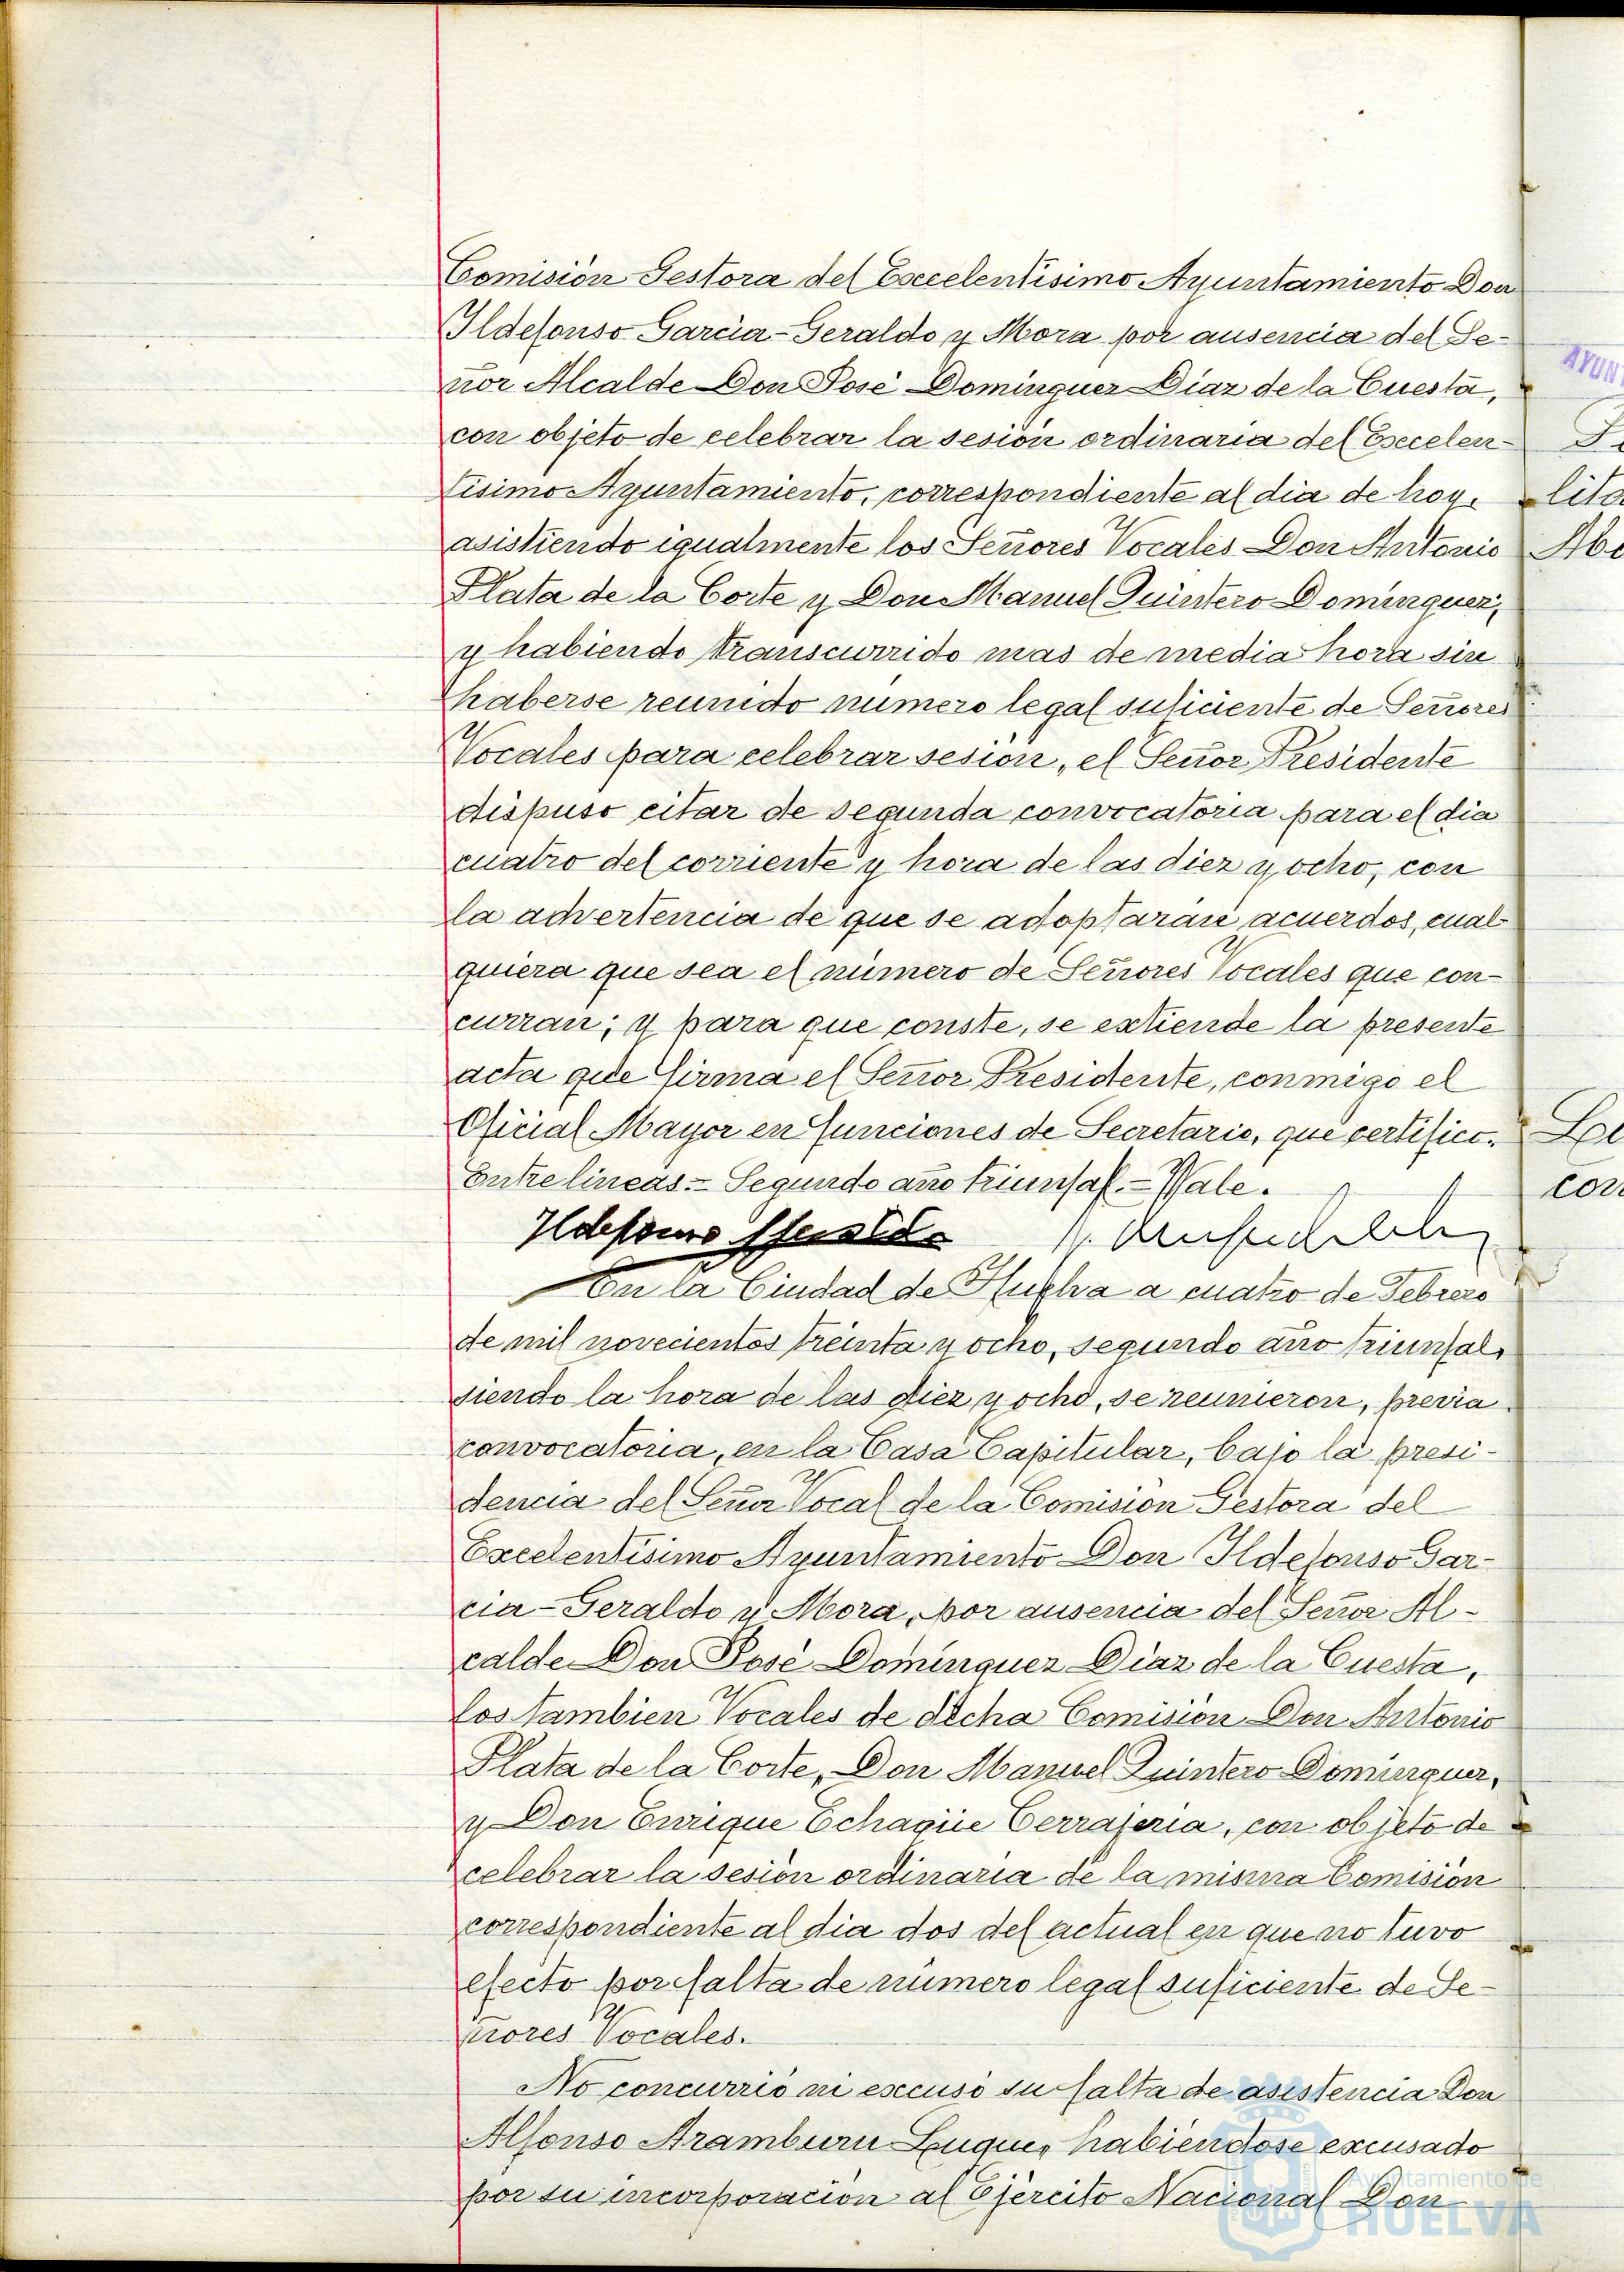 Comisión Gestora del Excelentísimo Ayuntamiento Don
Ildefonso García-Geraldo y Mora por ausencia del Se-
ñor Alcalde Don José Dominguez Díaz de la Cuesta,
con objeto de celebrar la sesión ordinaria del Excelen-
tísimo Ayuntamiento, correspondiente al dia de hoy,
asistiendo igualmente los Señores Vocales Don Antonio
Plata de la Corte y Don Manuel Quintero Dominguez,
y habiendo transcurrido mas de media hora sin
haberse reunido número legal suficiente de Señores
Vocales para celebrar sesión, el Señor Presidente
dispuso citar de segunda convocatoria para el dia
cuatro del corriente y hora de las diez y ocho, con
la advertencia de que se adoptarán acuerdos, cual-
quiera que sea el número de Señores Vocales que con-
curran; y para que conste, se extiende la presente
acta que firma el Señor Presidente, conmigo el
Oficial Mayor en funciones de Secretario, que certifico.
Entre lineas.= Segundo año triunfal.= Vale.
Ildefonso Geraldo
En la Ciudad de Huelva a cuatro de Febrero
de mil novecientos treinta y ocho, segundo año triunfal,
siendo la hora de las diez y ocho, se reunieron, previa
convocatoria, en la Casa Capitular, bajo la presi-
dencia del Señor Vocal de la Comisión Gestora del
Excelentísimo Ayuntamiento Don Ildefonso Gar-
cía-Geraldo y Mora, por ausencia del Señor Al-
calde Don José Domínguez Díaz de la Cuesta,
los tambien Vocales de dicha Comisión Don Antonio
Plata de la Corte, Don Manuel Quintero Dominguez,
y Don Enrique Echagüe Cerrajería, con objeto de
celebrar la sesión ordinaria de la misma Comisión
correspondiente al dia dos del actual en que no tuvo
efecto por falta de número legal suficiente de Se-
ñores Vocales.
No concurrió ni excusó su falta de asistencia Don
Alfonso Aramburu Luque, habiéndose excusado
por su incorporación al Ejército Nacional Don
Ayuntamiento de
HUELVA